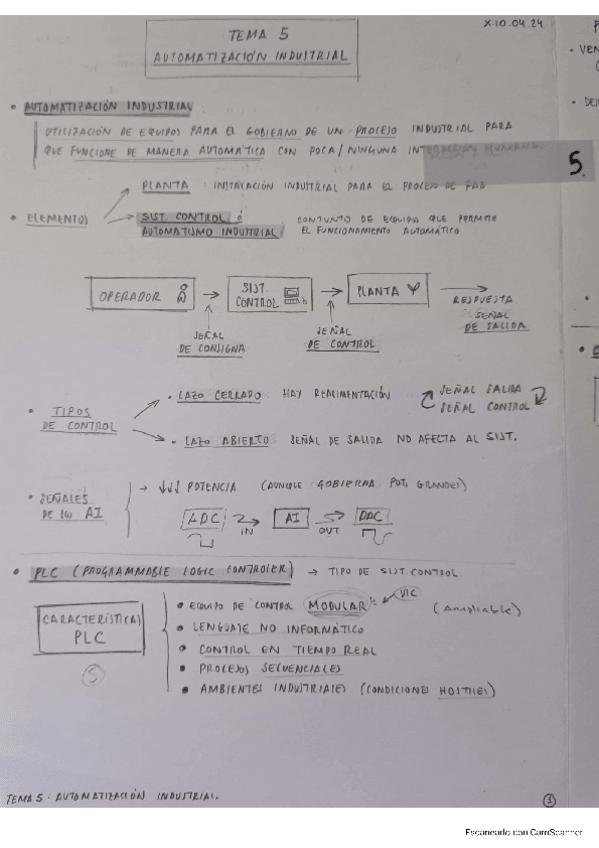 X·10·04·24
TEMA 5
AUTOMATIZACIÓN INDUSTRIAL
• AUTOMATIZACIÓN INDUSTRIAL
UTILIZACIÓN DE EQUIPOS PARA EL GOBIERNO DE UN PROCESO INDUSTRIAL PARA
QUE FUNCIONE DE MANERA AUTOMÁTICA CON POCA/NINGUNA INTERACCIÓN HUMANA.
5.
PLANTA : INSTALACIÓN INDUSTRIAL PARA EL PROCESO DE FAB
• ELEMENTOS
SIST. CONTROL Ó
AUTOMATISMO INDUSTRIAL
CONJUNTO DE EQUIPOS QUE PERMITE
EL FUNCIONAMIENTO AUTOMÁTICO
OPERADOR → SIST. CONTROL → PLANTA →
RESPUESTA
SEÑAL
DE SALIDA
SEÑAL
DE CONSIGNA
SEÑAL
DE CONTROL
• TIPOS
DE CONTROL
• LAZO CERRADO: HAY REALIMENTACIÓN
SEÑAL SALIDA
SEÑAL CONTROL
• LAZO ABIERTO: SEÑAL DE SALIDA NO AFECTA AL SIST.
• SEÑALES
DE LOS AI
→ ↓↓↓ POTENCIA (AUNQUE GOBIERNA POT. GRANDES)
ADC → AI → DAC
IN OUT
• PLC (PROGRAMMABLE LOGIC CONTROLER) → TIPO DE SIST. CONTROL
CARACTERÍSTICAS
PLC
5
• EQUIPO DE CONTROL MODULAR (Ampliable)
• LENGUAJE NO INFORMÁTICO
• CONTROL EN TIEMPO REAL
• PROCESOS SECUENCIALES
• AMBIENTES INDUSTRIALES (CONDICIONES HOSTILES)
TEMA 5: AUTOMATIZACIÓN INDUSTRIAL.
1
Escaneado con CamScanner